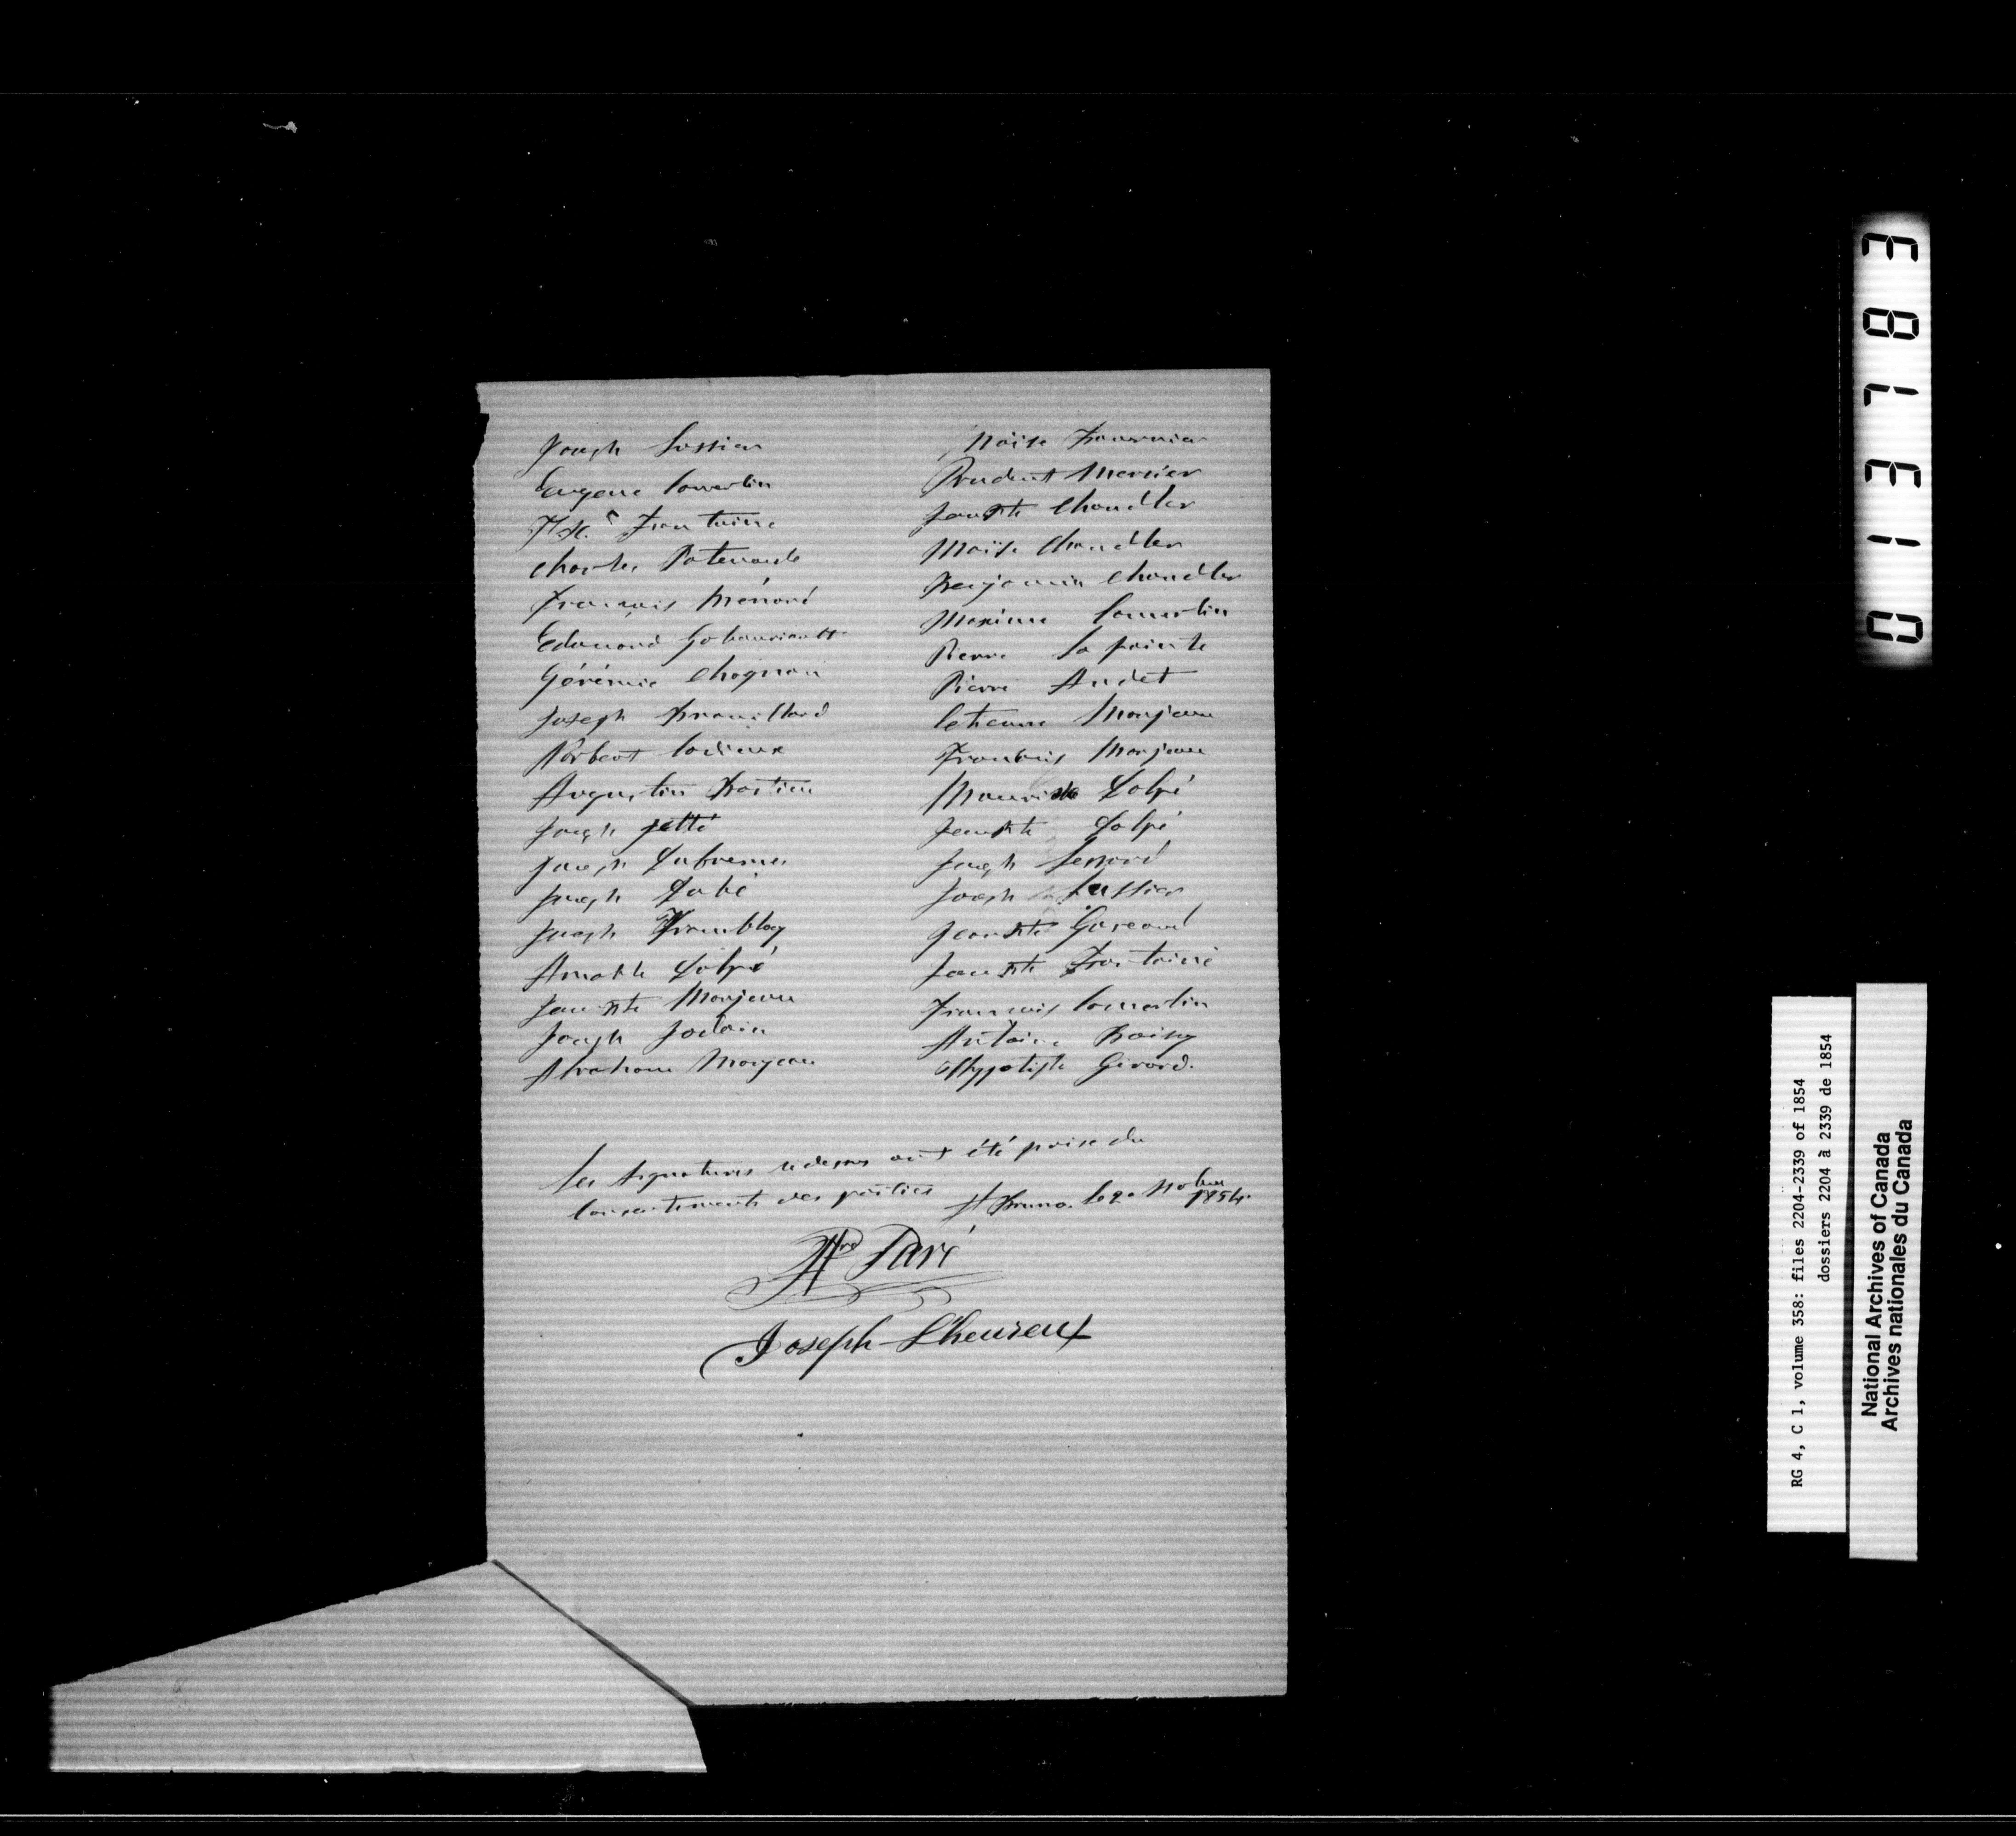 Joseph Lussier
Eugene Comertin
Fontaine
Charles Patenaude
François Ménard
Edmond Gobouriault
Gérémie Chagnon
Joseph Brouillard
Norbert Codieux
Augustin Bastien
Joseph Jetté
Joseph Dufresne
Joseph Dubé
Joseph Tremblay
Amable Dolpé
JeanBte Monjeau
Joseph Jodoin
Abraham Monjeau
Moïse Fournier
Prudent Mercier
JeanBte Chandler
Moïse Chandler
Benjamin Chandler
Maxime Comertin
Pierre Lapointe
Pierre Audet
Etienne Monjeau
François Monjeau
Dolpé
JeanBte Dolpé
Joseph Lessard
Joseph Lussier
JeanBte Gareaud
JeanBte Fontaine
François Comertin
Antoine Boisy
Girard.
Les signatures cidessus ont été prise du
consentements des parties St Bruno. le 20 Nobre 1854.
Paré
Joseph L'heureux
013783
RG 4, C 1, volume 358: files 2204-2339 of 1854
dossiers 2204 à 2339 de 1854
National Archives of Canada
Archives nationales du Canada